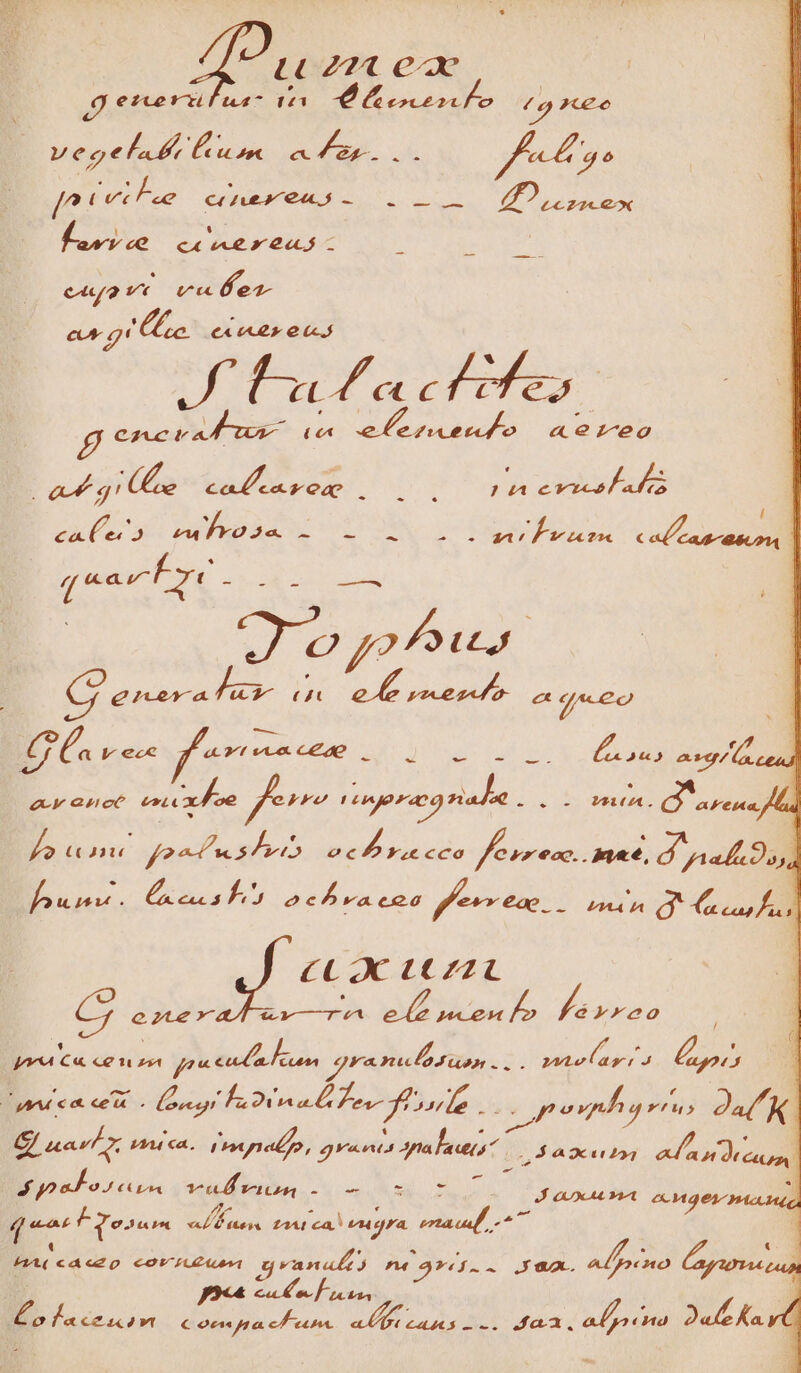 Pumex
generatur in Elemento igneo
vegetabilium ater. . . fuligo
pyritæ cinereus - . - - Pumex
ferri cinereus -
cupri ruber
argillæ cinereus
Stalactites
generatur in elemento aereo
argillæ calcareæ . . . incrustatis
calcis nitrosa - - - - - nitrum calcareum
quartzi - . . - —
Tophus
Generatur in elemento aqueo
Glareæ farinaceæ - - - - -. lusus argilaceus
arenæ mixtæ ferro impregnatæ . . - min. ♂ arenaceus
humi palustris ochracea ferreæ.. min. ♂ paludosa
humi. lacustris ochracea ferreæ.. min ♂ lacustris
Saxum
Generatur in elemento terreo
micaceum granulosum... molaris lapis
micaceū . longitudinaliter fissile ... porphyrius Dalk
Quartz, mica. impalp, granis spataceis - Saxum alandicum
Spatosum rubrum - - - - Saxum angermanic
quartzosum album mica nigra macul,--
micaceo corneum granulis nigris.. Sax. alpino lapponicum
Cotaceum compactum albicans --. Sax. alpino Dalekarl